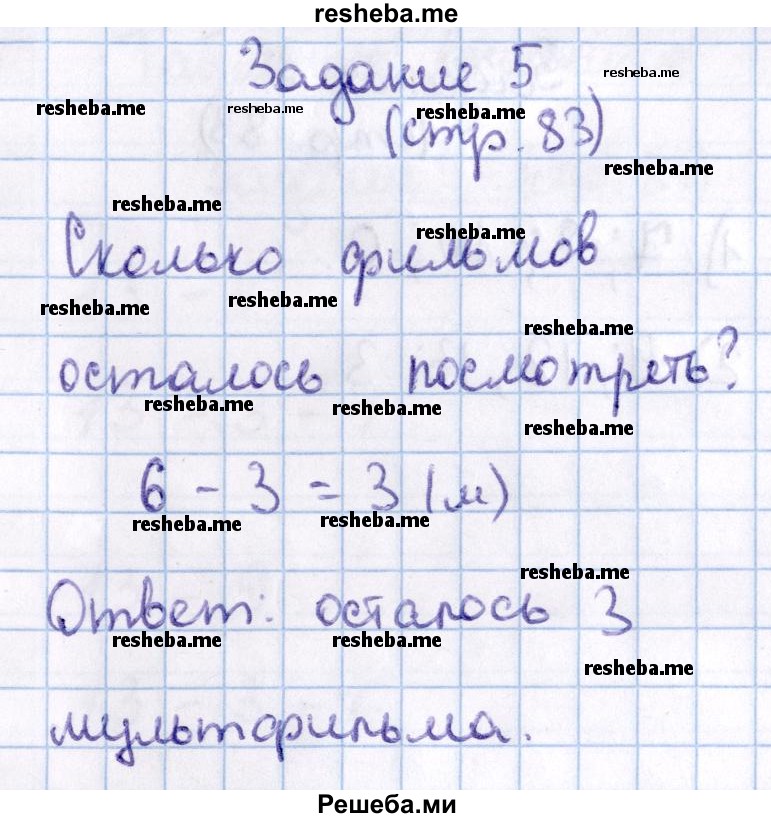 resheba.me
Задание 5
resheba.me
resheba.me
resheba.me
resheba.me
(стр. 83)
resheba.me
resheba.me
resheba.me
Сколько фильмов
resheba.me
resheba.me
resheba.me
осталось посмотреть?
resheba.me
resheba.me
resheba.me
6 - 3 = 3 (м)
resheba.me
resheba.me
resheba.me
Ответ: осталось 3
resheba.me
resheba.me
resheba.me
мультфильма.
Решеба.ми